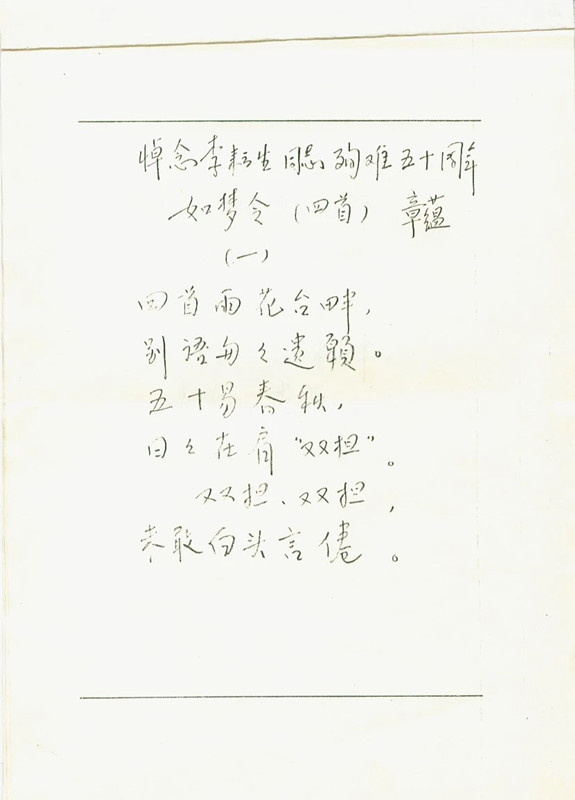 悼念李耘生同志殉难五十周年
如梦令（四首） 章蕴
（一）
回首雨花台畔，
别语匆々遗愿。
五十易春秋，
日々在肩“双担”。
双担、双担，
未敢白头言倦。